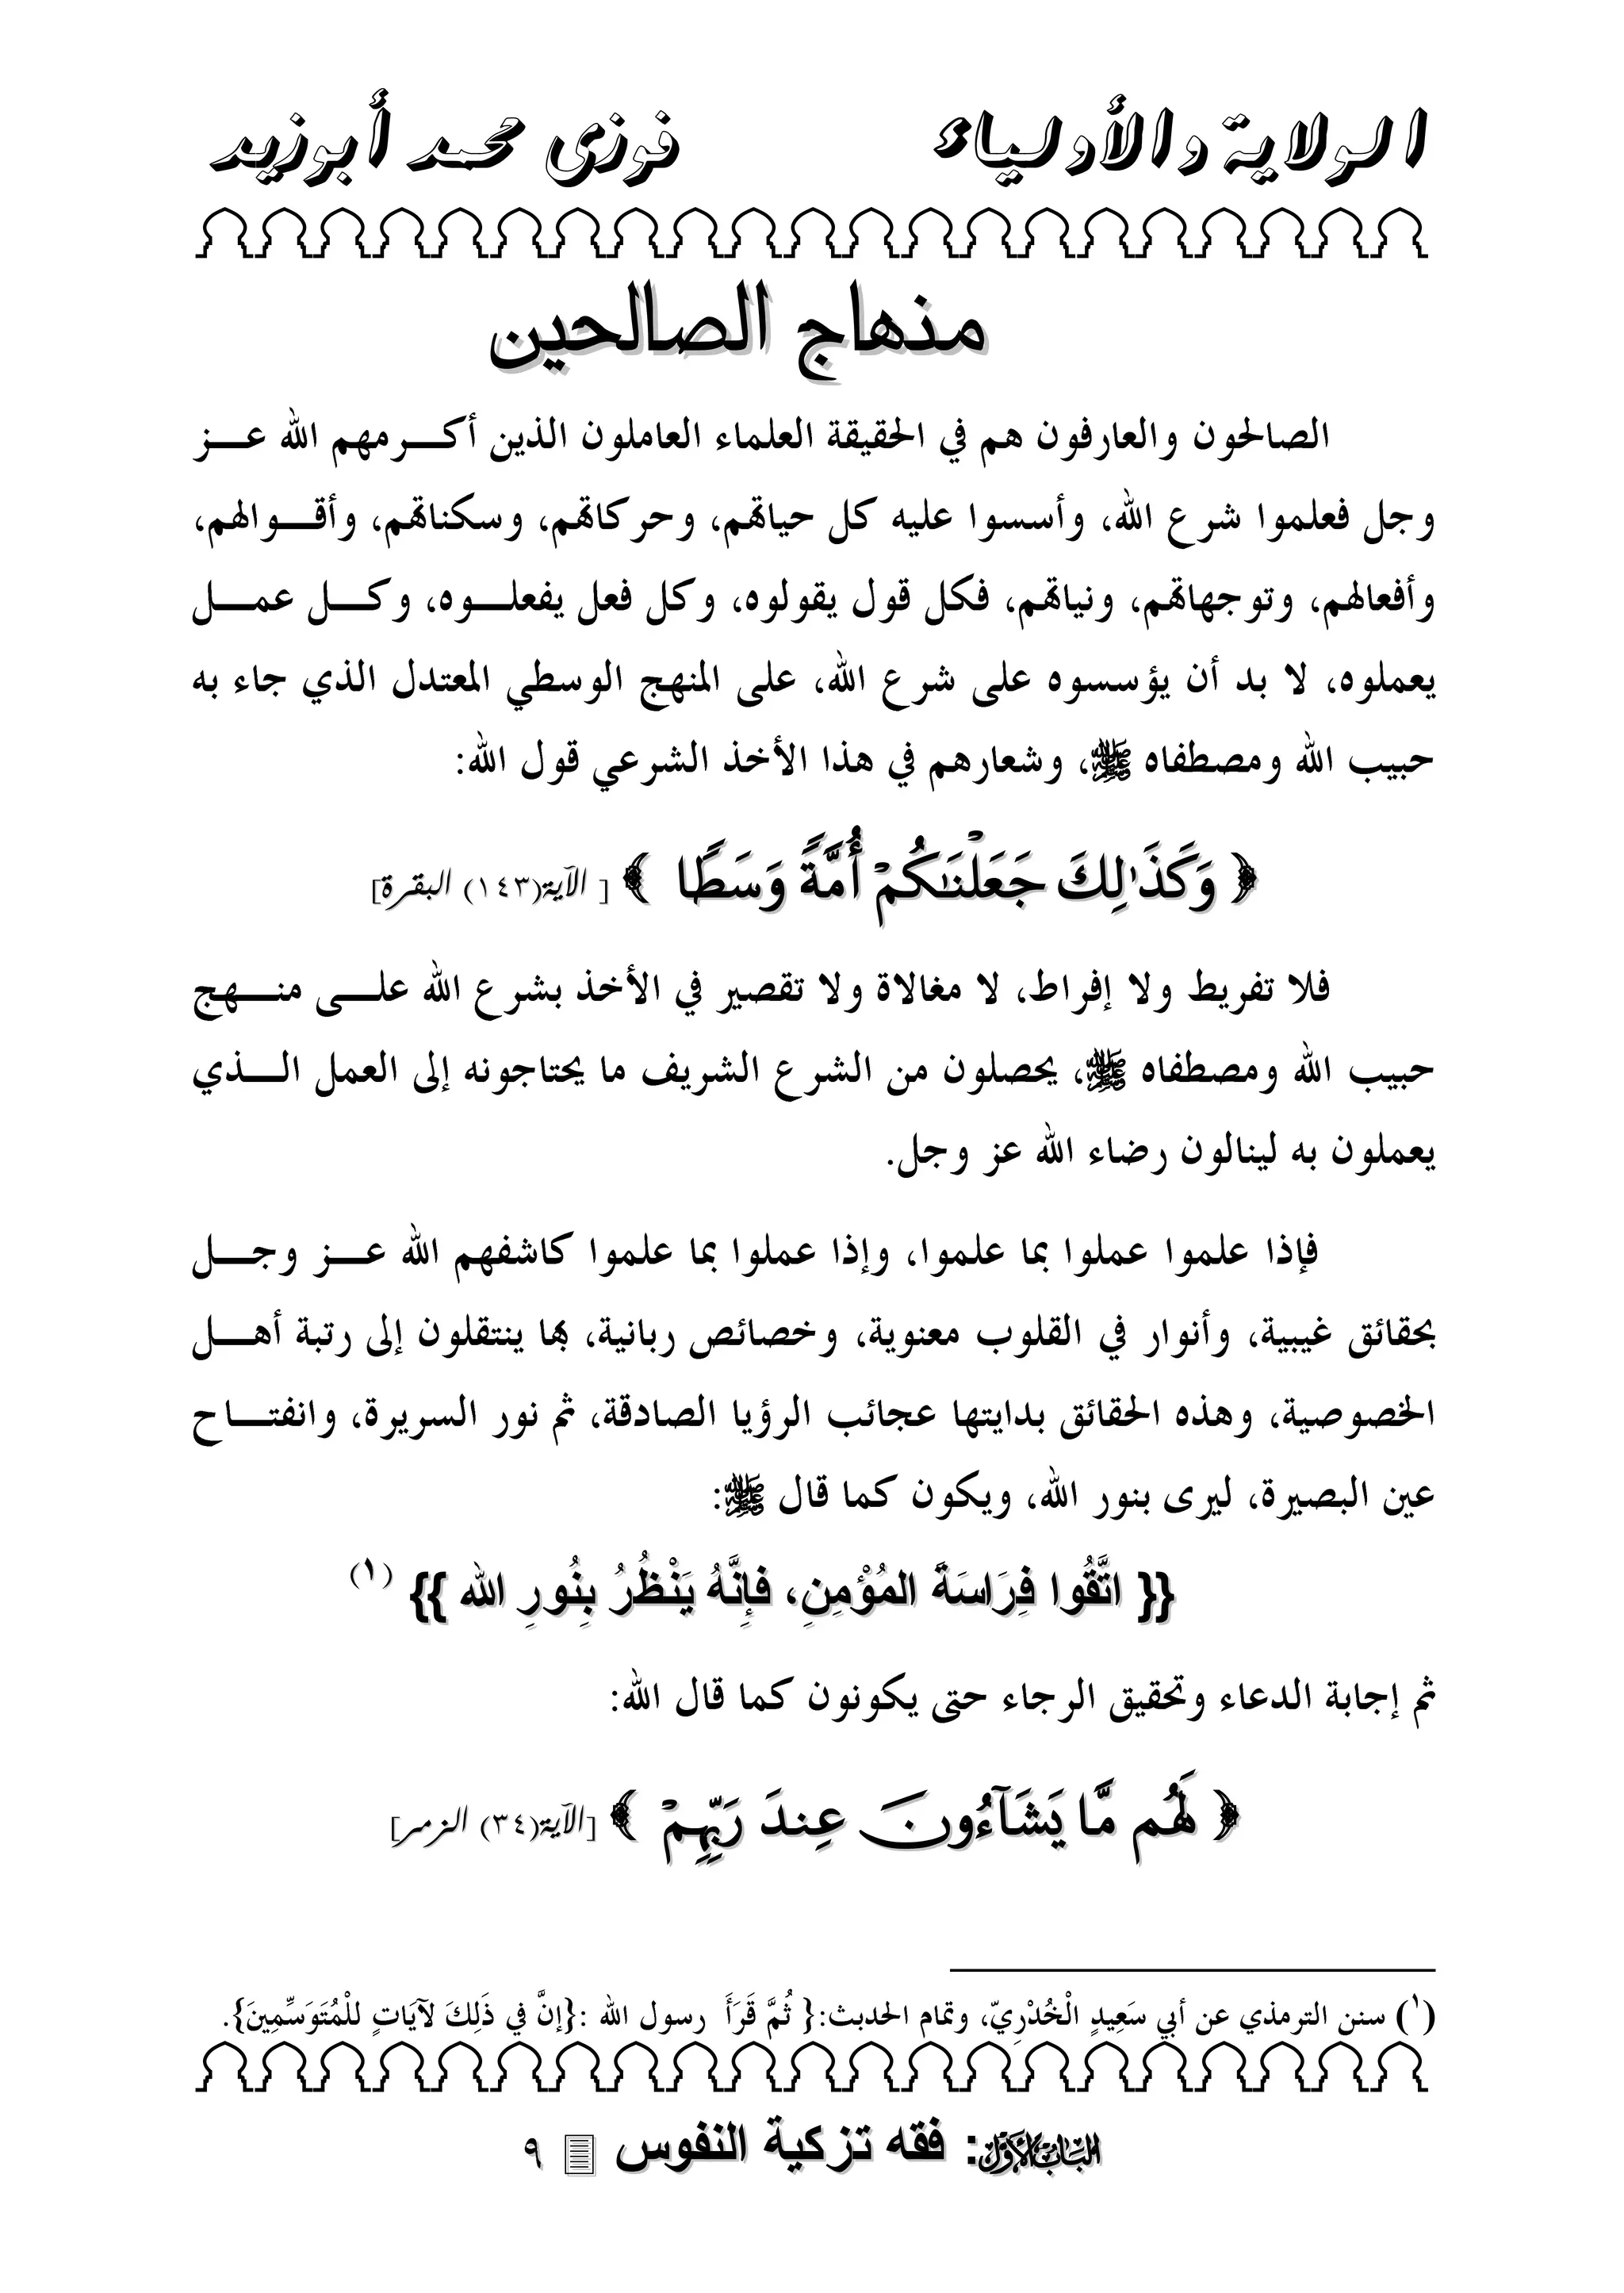 الولاية والأولياء فوزى محمد أبوزيد
منهاج الصالحين
الصالحون والعارفون هم في الحقيقة العلماء العاملون الذين أكـــرمهم الله عـــز
وجل فعلموا شرع الله، وأسسوا عليه كل حياتهم، وحركاتهم، وسكناتهم، وأقـــوالهم،
وأفعالهم، وتوجهاتهم، ونياتهم، فكل قول يقولوه، وكل فعل يفعلـــوه، وكـــل عمـــل
يعملوه، لا بد أن يؤسسوه على شرع الله، على المنهج الوسطي المعتدل الذي جاء به
حبيب الله ومصطفاه ﷺ، وشعارهم في هذا الأخذ الشرعي قول الله:
﴿ وَكَذَٰلِكَ جَعَلْنَـٰكُمْ أُمَّةً وَسَطًا ﴾ [ الآية(١٤٣) البقرة]
فلا تفريط ولا إفراط، لا مغالاة ولا تقصير في الأخذ بشرع الله علـــى منـــهج
حبيب الله ومصطفاه ﷺ، يحصلون من الشرع الشريف ما يحتاجونه إلى العمل الـــذي
يعملون به لينالون رضاء الله عز وجل.
فإذا علموا عملوا بما علموا، وإذا عملوا بما علموا كاشفهم الله عـــز وجـــل
بحقائق غيبية، وأنوار في القلوب معنوية، وخصائص ربانية، بها ينتقلون إلى رتبة أهـــل
الخصوصية، وهذه الحقائق بدايتها عجائب الرؤيا الصادقة، ثم نور السريرة، وانفتـــاح
عين البصيرة، ليرى بنور الله، ويكون كما قال ﷺ:
{{ اتَّقُوا فِرَاسَةَ المُؤْمِنِ، فإِنَّهُ يَنْظُرُ بِنُورِ الله }} (١)
ثم إجابة الدعاء وتحقيق الرجاء حتى يكونون كما قال الله:
﴿ لَهُم مَّا يَشَآءُونَ عِندَ رَبِّهِمْ ﴾ [الآية(٣٤) الزمر]
(١) سنن الترمذي عن أبي سَعِيدٍ الْخُدْرِيّ، وتمام الحديث:{ ثُمَّ قَرَأَ رسول الله :{إنَّ في ذَلِكَ لآيَاتٍ للْمُتَوَسِّمِينَ}.
الباب الأول: فقه تزكية النفوس ٩